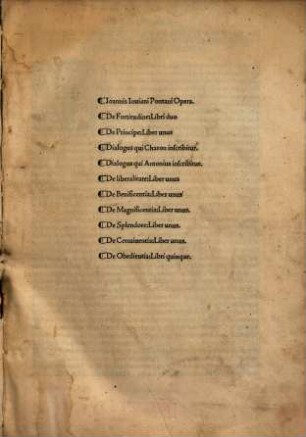 ¶Ioannis Iouiani Pontani Opera.
¶De Fortitudine:Libri duo
¶De Principe:Liber unus
¶Dialogus qui Charon inscribitur.
¶Dialogus qui Antonius inscribitur.
¶De liberalitate:Liber unus
¶De Benificentia:Liber unus
¶De Magnificentia:Liber unus.
¶De Splendore:Liber unus.
¶De Conuiuentia:Liber unus.
¶De Obedientia:Libri quinque.